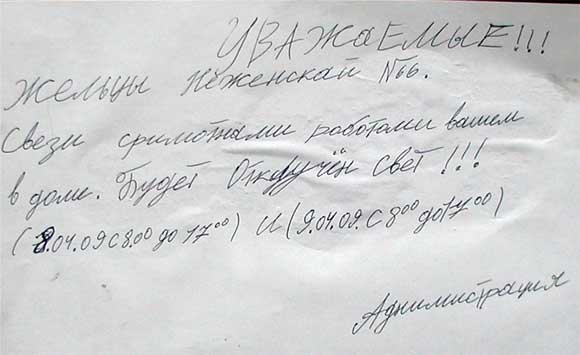 УВАЖаЕМЫЕ!!!
Жельцы Неженской №66.
Свези сримотными работами вашем
в доме. Будет Отключён свет!!!
(8.04.09 с 8.00 до 17 00) И (9.04.09. с 8 00 до 17 00)
Аднимистрация